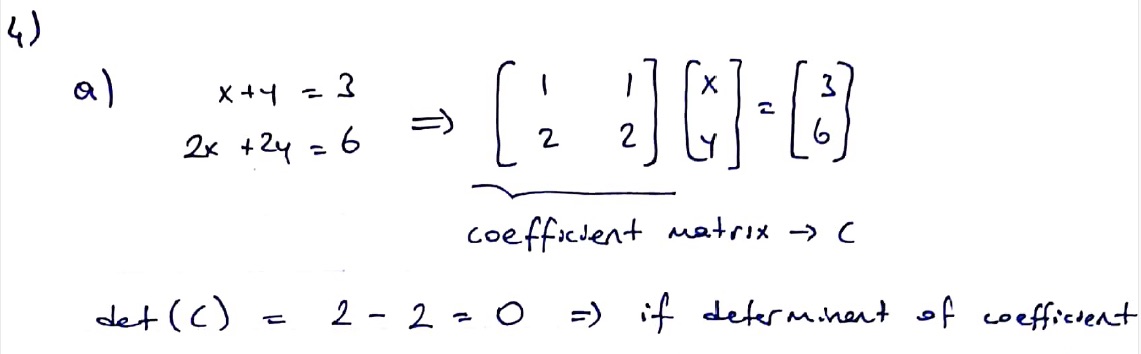 4)
a) x+y = 3 ⇒ [1 1; 2 2] [x; y] = [3; 6]
2x +2y = 6
coefficient matrix → C
det(C) = 2 - 2 = 0 ⇒ if determinent of coefficient